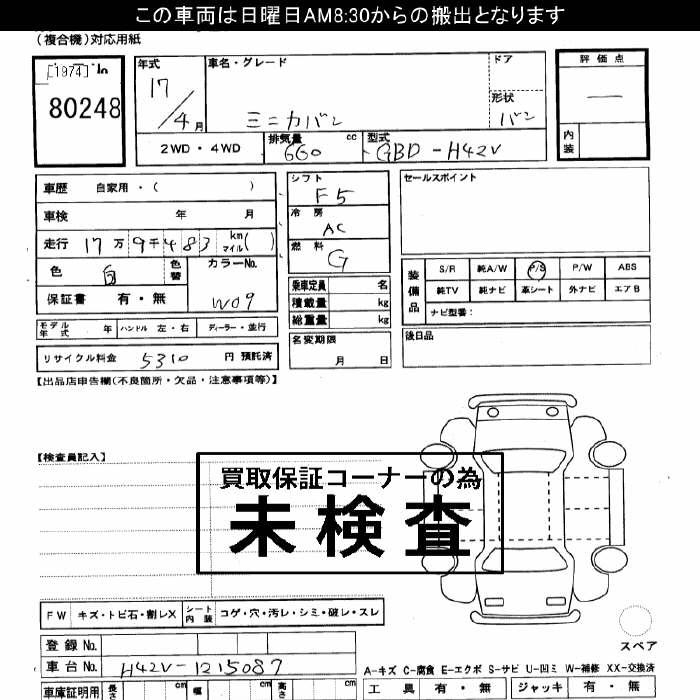 この車両は日曜日AM8:30からの搬出となります
(複合機)対応用紙
[1974] In
80248
年式 17/4月
車名・グレード ミニカバン
ドア
形状 バン
評価点 —
内装
2WD・4WD
排気量 660 cc
型式 GBD-H42V
車歴 自家用・( )
車検 年 月
走行 17万9千483 km マイル( )
色 白 色替
カラーNo. W09
保証書 有・無
モデル年式 年 ハンドル 左・右 ディーラー・並行
リサイクル料金 5310 円 預託済
シフト F5
冷房 AC
燃料 G
乗車定員 名
積載量 kg
総重量 kg
名変期限 月 日
セールスポイント
装備品
S/R 純A/W P/S P/W ABS
純TV 純ナビ 革シート 外ナビ エアB
ナビ型番:
後日品
【出品店申告欄(不良箇所・欠品・注意事項等)】
【検査員記入】
買取保証コーナーの為
未検査
FW キズ・トビ石・割レX シート内装 コゲ・穴・汚レ・シミ・破レ・スレ
スペア
登録No.
車台No. H42V-1215087
車庫証明用 長さ cm 幅 cm 高さ cm
A-キズ C-腐食 E-エクボ S-サビ U-凹ミ W-補修 XX-交換済
工具 有・無 ジャッキ 有・無